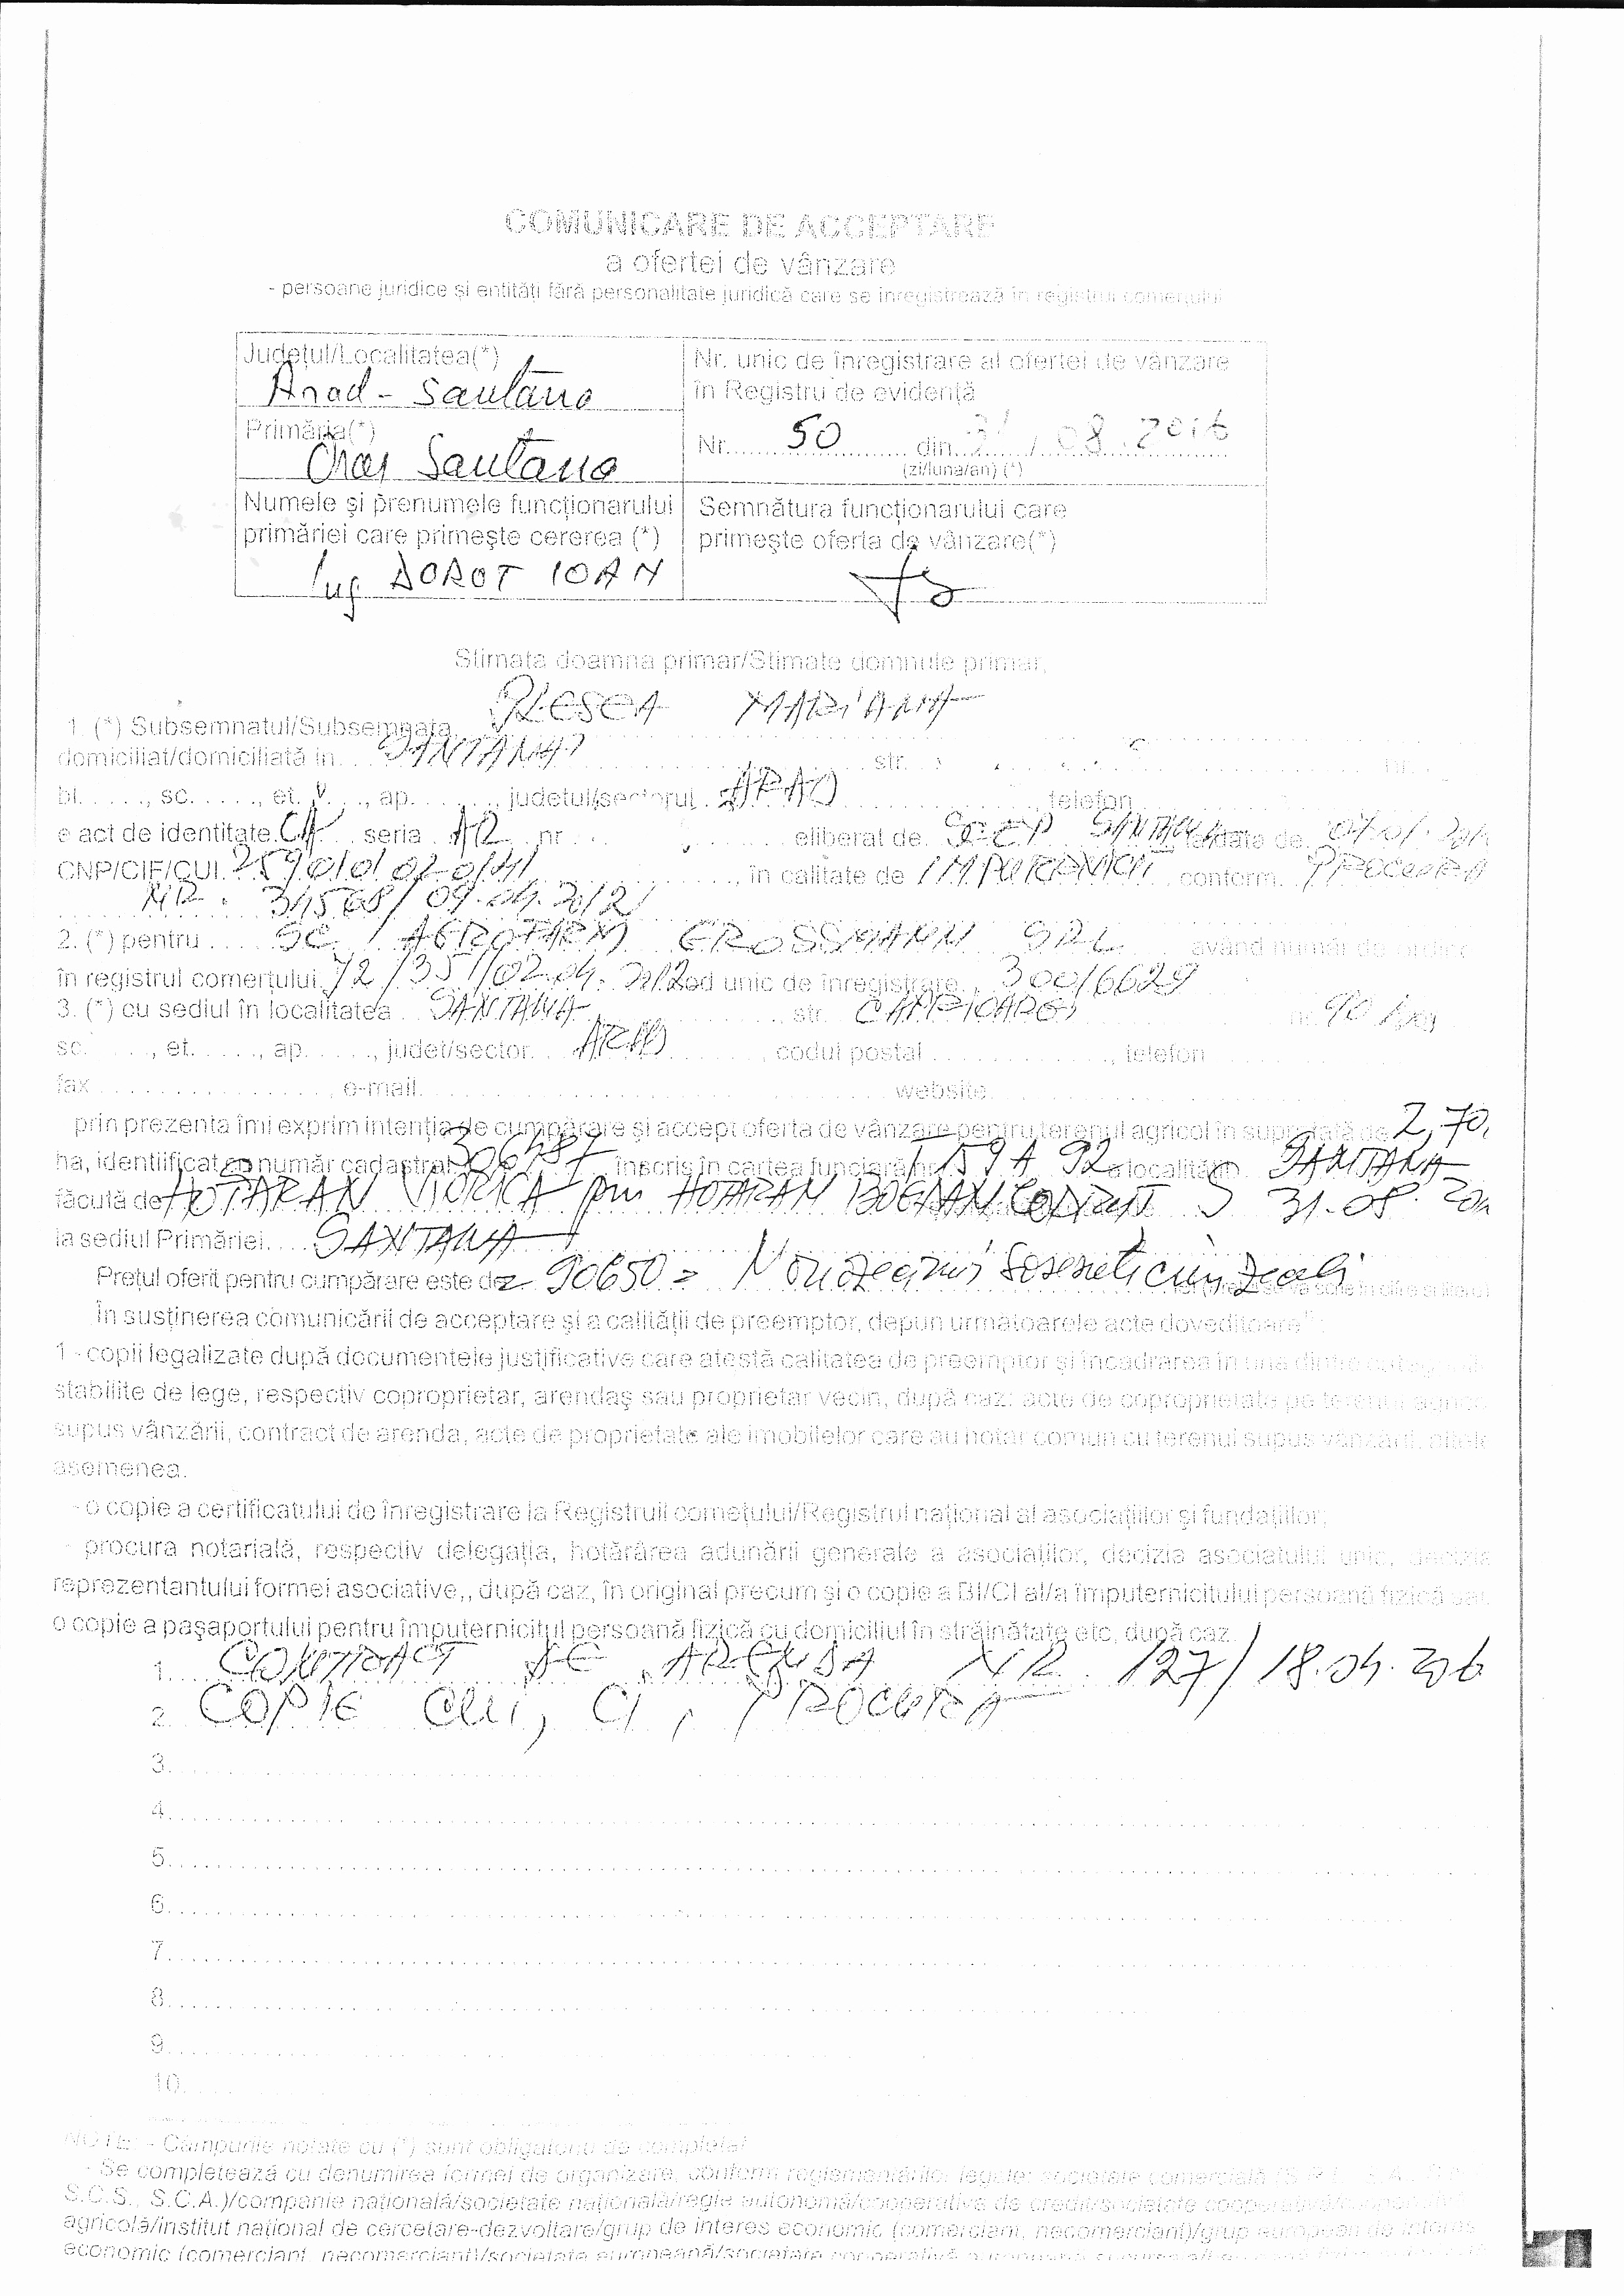 COMUNICARE DE ACCEPTARE
a ofertei de vânzare
- persoane juridice și entități fără personalitate juridică care se înregistrează în registrul comerțului
Județul/Localitatea(*)
Arad - Santana
Nr. unic de înregistrare al ofertei de vânzare
în Registru de evidență
Primăria(*)
Oraș Santana
Nr. 50 din 31 / 08 . 2016
(zi/luna/an) (*)
Numele și prenumele funcționarului
primăriei care primește cererea (*)
Ing DOROT IOAN
Semnătura funcționarului care
primește oferta de vânzare(*)
Stimata doamna primar/Stimate domnule primar,
1. (*) Subsemnatul/Subsemnata MARIANA
domiciliat/domiciliată in SANTANA str. nr.
bl. . . . ., sc. . . . ., et. . . ., ap. . . . . ., judetul/sectorul ARAD, telefon
e act de identitate CI seria AR nr eliberat de SANTANA la data de
CNP/CIF/CUI , în calitate de IMPUTERNICIT, conform. PROCURA
NR. 31568/09.04.2012
2. (*) pentru SC AGROFARM GROSSMANN SRL având număr de ordine
în registrul comerțului J2/351/02.04.2012 cod unic de înregistrare 30016629
3. (*) cu sediul în localitatea SANTANA, str. nr. 90
sc. . . . ., et. . . . ., ap. . . . ., judet/sector. ARAD, codul postal . . . ., telefon
fax . . . ., e-mail. . . . website.
prin prezenta îmi exprim intenția de cumpărare și accept oferta de vânzare pentru terenul agricol în suprafață de 2,70,
ha, identiificat cu număr cadastral 306487, înscris în cartea funciară nr. a localității SANTANA
făcută de HOTARAN VIORICA prin HOTARAN BOGDAN 31.08.
la sediul Primăriei SANTANA
Prețul oferit pentru cumpărare este de 90650 =
În susținerea comunicării de acceptare și a calității de preemptor, depun următoarele acte doveditoare
1 - copii legalizate după documentele justificative care atestă calitatea de preemptor și încadrarea în una dintre
stabilite de lege, respectiv coproprietar, arendaș sau proprietar vecin, după caz: acte de coproprietate pe terenul agricol
supus vânzării, contract de arenda, acte de proprietate ale imobilelor care au hotar comun cu terenul supus vânzării, altele
asemenea.
- o copie a certificatului de înregistrare la Registruil comețului/Registrul național al asociațiilor și fundațiilor;
- procura notarială, respectiv delegația, hotărârea adunării generale a asociaților, decizia asociatului unic, decizia
reprezentantului formei asociative,, după caz, în original precum și o copie a BI/CI al/a împuternicitului persoană fizică sau
o copie a pașaportului pentru împuternicitul persoană fizică cu domiciliul în străinătate etc, după caz.
1. CONTRACT DE ARENDA NR. 127/18.04.2016
2. COPIE CUI, CI, PROCURA
3.
4.
5.
6.
7.
8.
9.
10.
NOTE: - Câmpurile notate cu (*) sunt obligatoriu de completat
- Se completează cu denumirea formei de organizare, conform reglementărilor legale: societate comercială
S.C.S., S.C.A.)/companie națională/societate națională/regie autonomă/cooperativa de credit/societate cooperativă
agricolă/institut național de cercetare-dezvoltare/grup de interes economic (comerciant, necomerciant)/grup european de interes
economic (comerciant, necomerciant)/societate europeană/societate cooperativă